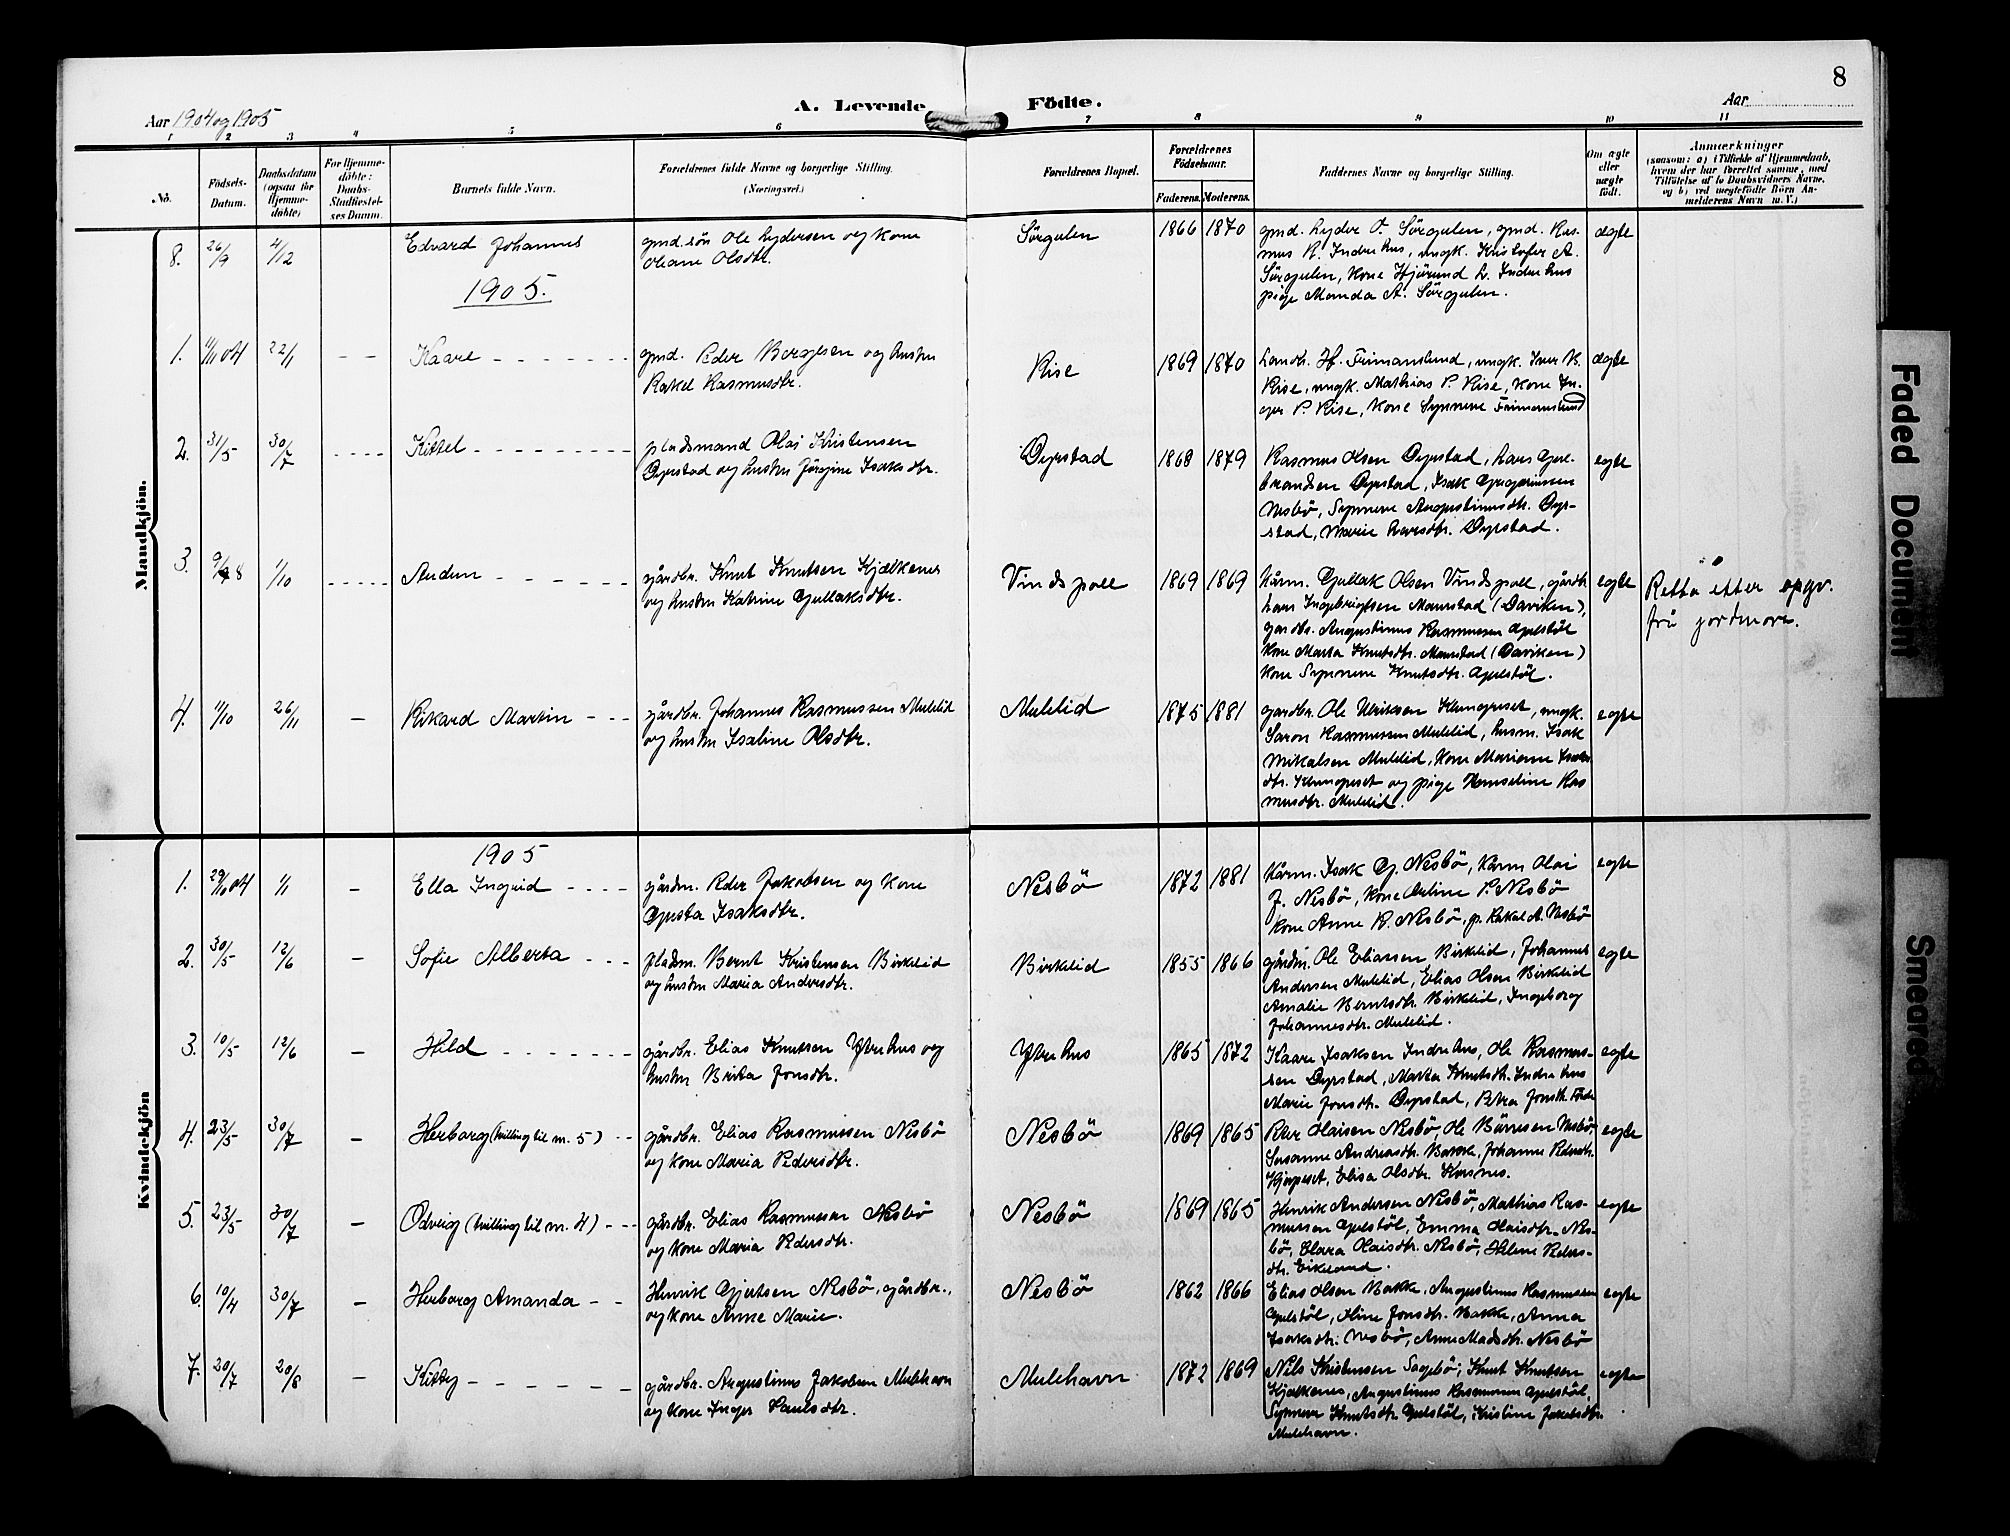 8
A. Levende Födte.
Aar 1904 og 1905
Aar
1 2 3 4 5 6 7 8 9 10 11
No.
Födsels-Datum.
Daabsdatum (ogsaa for Hjemme-döbte)
For Hjemme-döbte: Daabs-Stadfæstel-ses Datum.
Barnets fulde Navn.
Forældrenes fulde Navne og borgerlige Stilling. (Næringsvei.)
Forældrenes Bopæl.
Forældrenes Födselsaar.
Faderens. Moderens.
Faddernes Navne og borgerlige Stilling.
Om ægte eller uægte født.
Anmærkninger
(saasom: a) i Tilfælde af Hjemmedaab, hvem der har forrettet samme, med Tilföielse af to Daabsvidners Navne, og b) ved uægtefödte Börn An-melderens Navn m. V.)
Mandkjön.
8. 26/9 4/12 Edvard Johannes
gmd. sön Ole Lydersen og kone
Oliane Olsdtr.
Sörgulen 1866 1870
gmd. Lyder O. Sörgulen, gmd. Ras-
mus R. Indrehus, ungk. Kristofer A.
Sörgulen, kone Hjörund L. Indrehus
pige Manda A. Sörgulen.
ægte
1905.
1. 11/11 04 22/1 – – Kaare
gmd. Peder Børgesen og hustru
Rakel Rasmusdtr.
Rise 1869 1870
Landh. H. Frimanslund, ungk. Iver R.
Rise, ungk. Mathias P. Rise, kone In-
ger P. Rise, kone Synneve Frimanslund
ægte
2. 31/5 30/7 Kittel
pladsmand Olai Kristensen
Dyrstad og hustru Jörgine Isaksdtr.
Dyrstad 1868 1879
Rasmus Olsen Dyrstad, Lars Gul-
brandsen Dyrstad, Isak Gregoriussen
Nesbö, Synneve Augustinusdtr. Dyr-
stad, Marie Larsdtr. Dyrstad.
egte
3. 9/8 1/10 Audun
gårdbr. Knut Knutsen Kjelkenes
og hustru Katrine Gullaksdtr.
Vindspoll 1869 1869
Kårm. Gullak Olsen Vindspoll, gårdb.
Lars Ingebrigtsen Maurstad (Daviken),
gardbr. Augustinus Rasmussen Gulestöl
kone Marta Knutsdtr. Maurstad (Daviken)
kone Synneve Knutsdtr. Gulestöl.
egte
Retta etter opgv.
frå jordmora.
4. 11/10 26/11 – Rikard Martin
gårdbr. Johannes Rasmussen Mulelid
og hustru Isaline Olsdtr.
Mulelid 1875 1881
gardbr. Ole Ulriksen Klungreset, ungk.
Saron Rasmussen Mulelid, husm. Isak
Mikalsen Mulelid, kone Marianne Isaks
dtr. Klungreset og pige Hanseline Ras
musdtr. Mulelid.
egte
Kvindekjön
1905
1. 29/10 04 1/1 – Ella Ingrid
gårdm. Peder Jakobsen og kone
Gusta Isaksdtr.
Nesbö 1872 1881
Kårm. Isak G. Nesbö, Kårm Olai
J. Nesbö, kone Oeline P. Nesbö
kone Anne R. Nesbö, p. Rakel A. Nesbö
egte
2. 30/5 12/6 – Sofie Alberta
pladsm. Bernt Kristensen Birkelid
og hustru Maria Andersdtr.
Birkelid 1855 1866
gårdm. Ole Eliassen Birkelid, Johannes
Andersen Mulelid, Elias Olsen Birkelid
Amalie Berntsdtr. Birkelid, Ingeborg
Johannesdtr. Mulelid.
egte
3. 10/5 12/6 – Hild
gårdbr. Elias Knutsen Ytrehus og
hustru Brita Jonsdtr.
Ytrehus 1865 1872
Kaare Isaksen Indrehus, Ole Rasmus-
sen Dyrstad, Marta Knutsdtr. Indrehus
Marie Jonsdtr. Dyrstad, Petra Jonsdtr. Förde
egte
4. 23/5 30/7 – Herborg (tvilling til nr. 5)
gårdbr. Elias Rasmussen Nesbö
og kone Maria Pedersdtr.
Nesbö 1869 1865
Peder Olaisen Nesbö, Ole Börresen Nesbö
Susanne Andreasdtr. Bakke, Johanne Pedersdtr.
Hjepeset, Elisa Olsdtr. Kasnes.
egte
5. 23/5 30/7 – Odveig (tvilling til nr. 4)
gårdbr. Elias Rasmussen Nesbö
og kone Maria Pedersdtr.
Nesbö 1869 1865
Henrik Andersen Nesbö, Mathias Ras-
mussen Gulestöl, Emma Olaisdtr. Nes-
bö, Clara Olaisdtr. Nesbö, Helene Peders-
dtr. Eikeland.
egte
6. 10/4 30/7 – Herborg Amanda
Henrik Gjertsen Nesbö, gårdbr.,
og kone Anne Marie.
Nesbö 1862 1866
Elias Olsen Bakke, Augustinus Rasmussen
Gulestöl, Oline Jonsdtr. Bakke, Anna
Isaksdtr. Nesbö, Anne Madsdtr. Nesbö
egte
7. 20/7 20/8 – Kitty
gårdbr. Augustinus Jakobsen Mulehavn
og kone Inger Paulsdtr.
Mulehavn 1872 1869
Nils Kristensen Sagebö, Knut Knutsen
Kjelkenes, Augustinus Rasmussen Gulestöl,
Synneve Knutsdtr Gulestöl, Kristine Jakobsdtr.
Mulehavn.
egte
Faded Document
Smeared